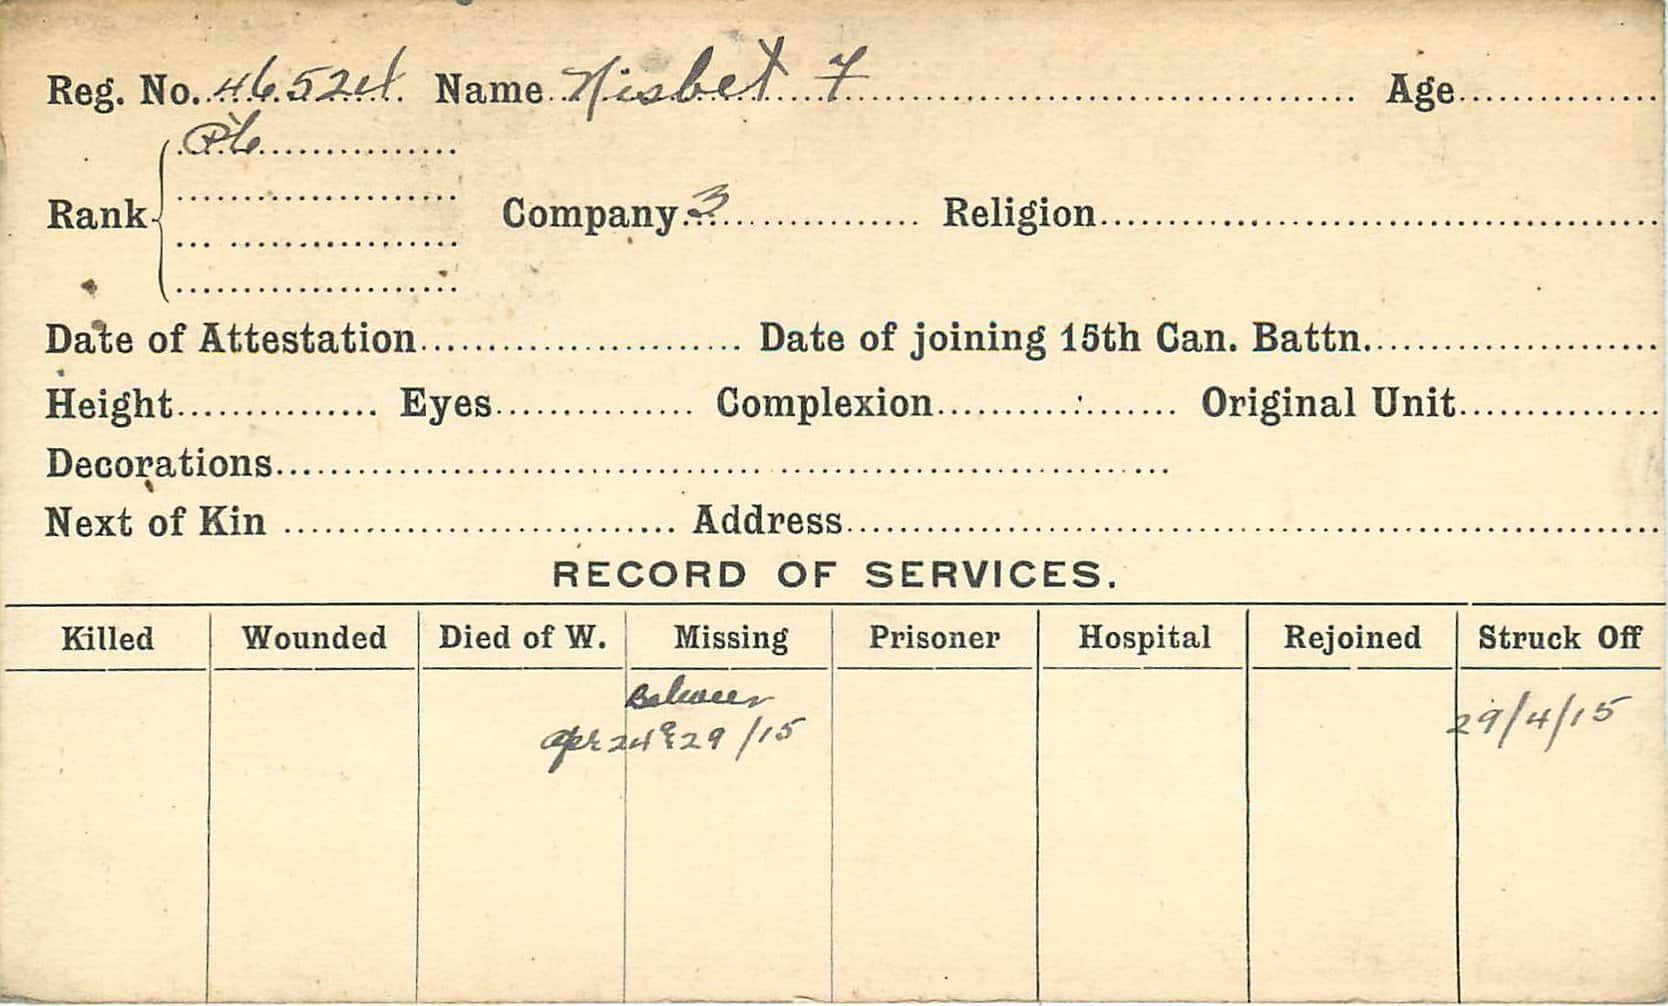 Reg. No. 46524 Name Nisbet F Age
Pte
Rank Company 3 Religion
Date of Attestation Date of joining 15th Can. Battn.
Height Eyes Complexion Original Unit
Decorations
Next of Kin Address
RECORD OF SERVICES.
Killed Wounded Died of W. Missing Prisoner Hospital Rejoined Struck Off
Between
Apr 24 & 29/15 29/4/15